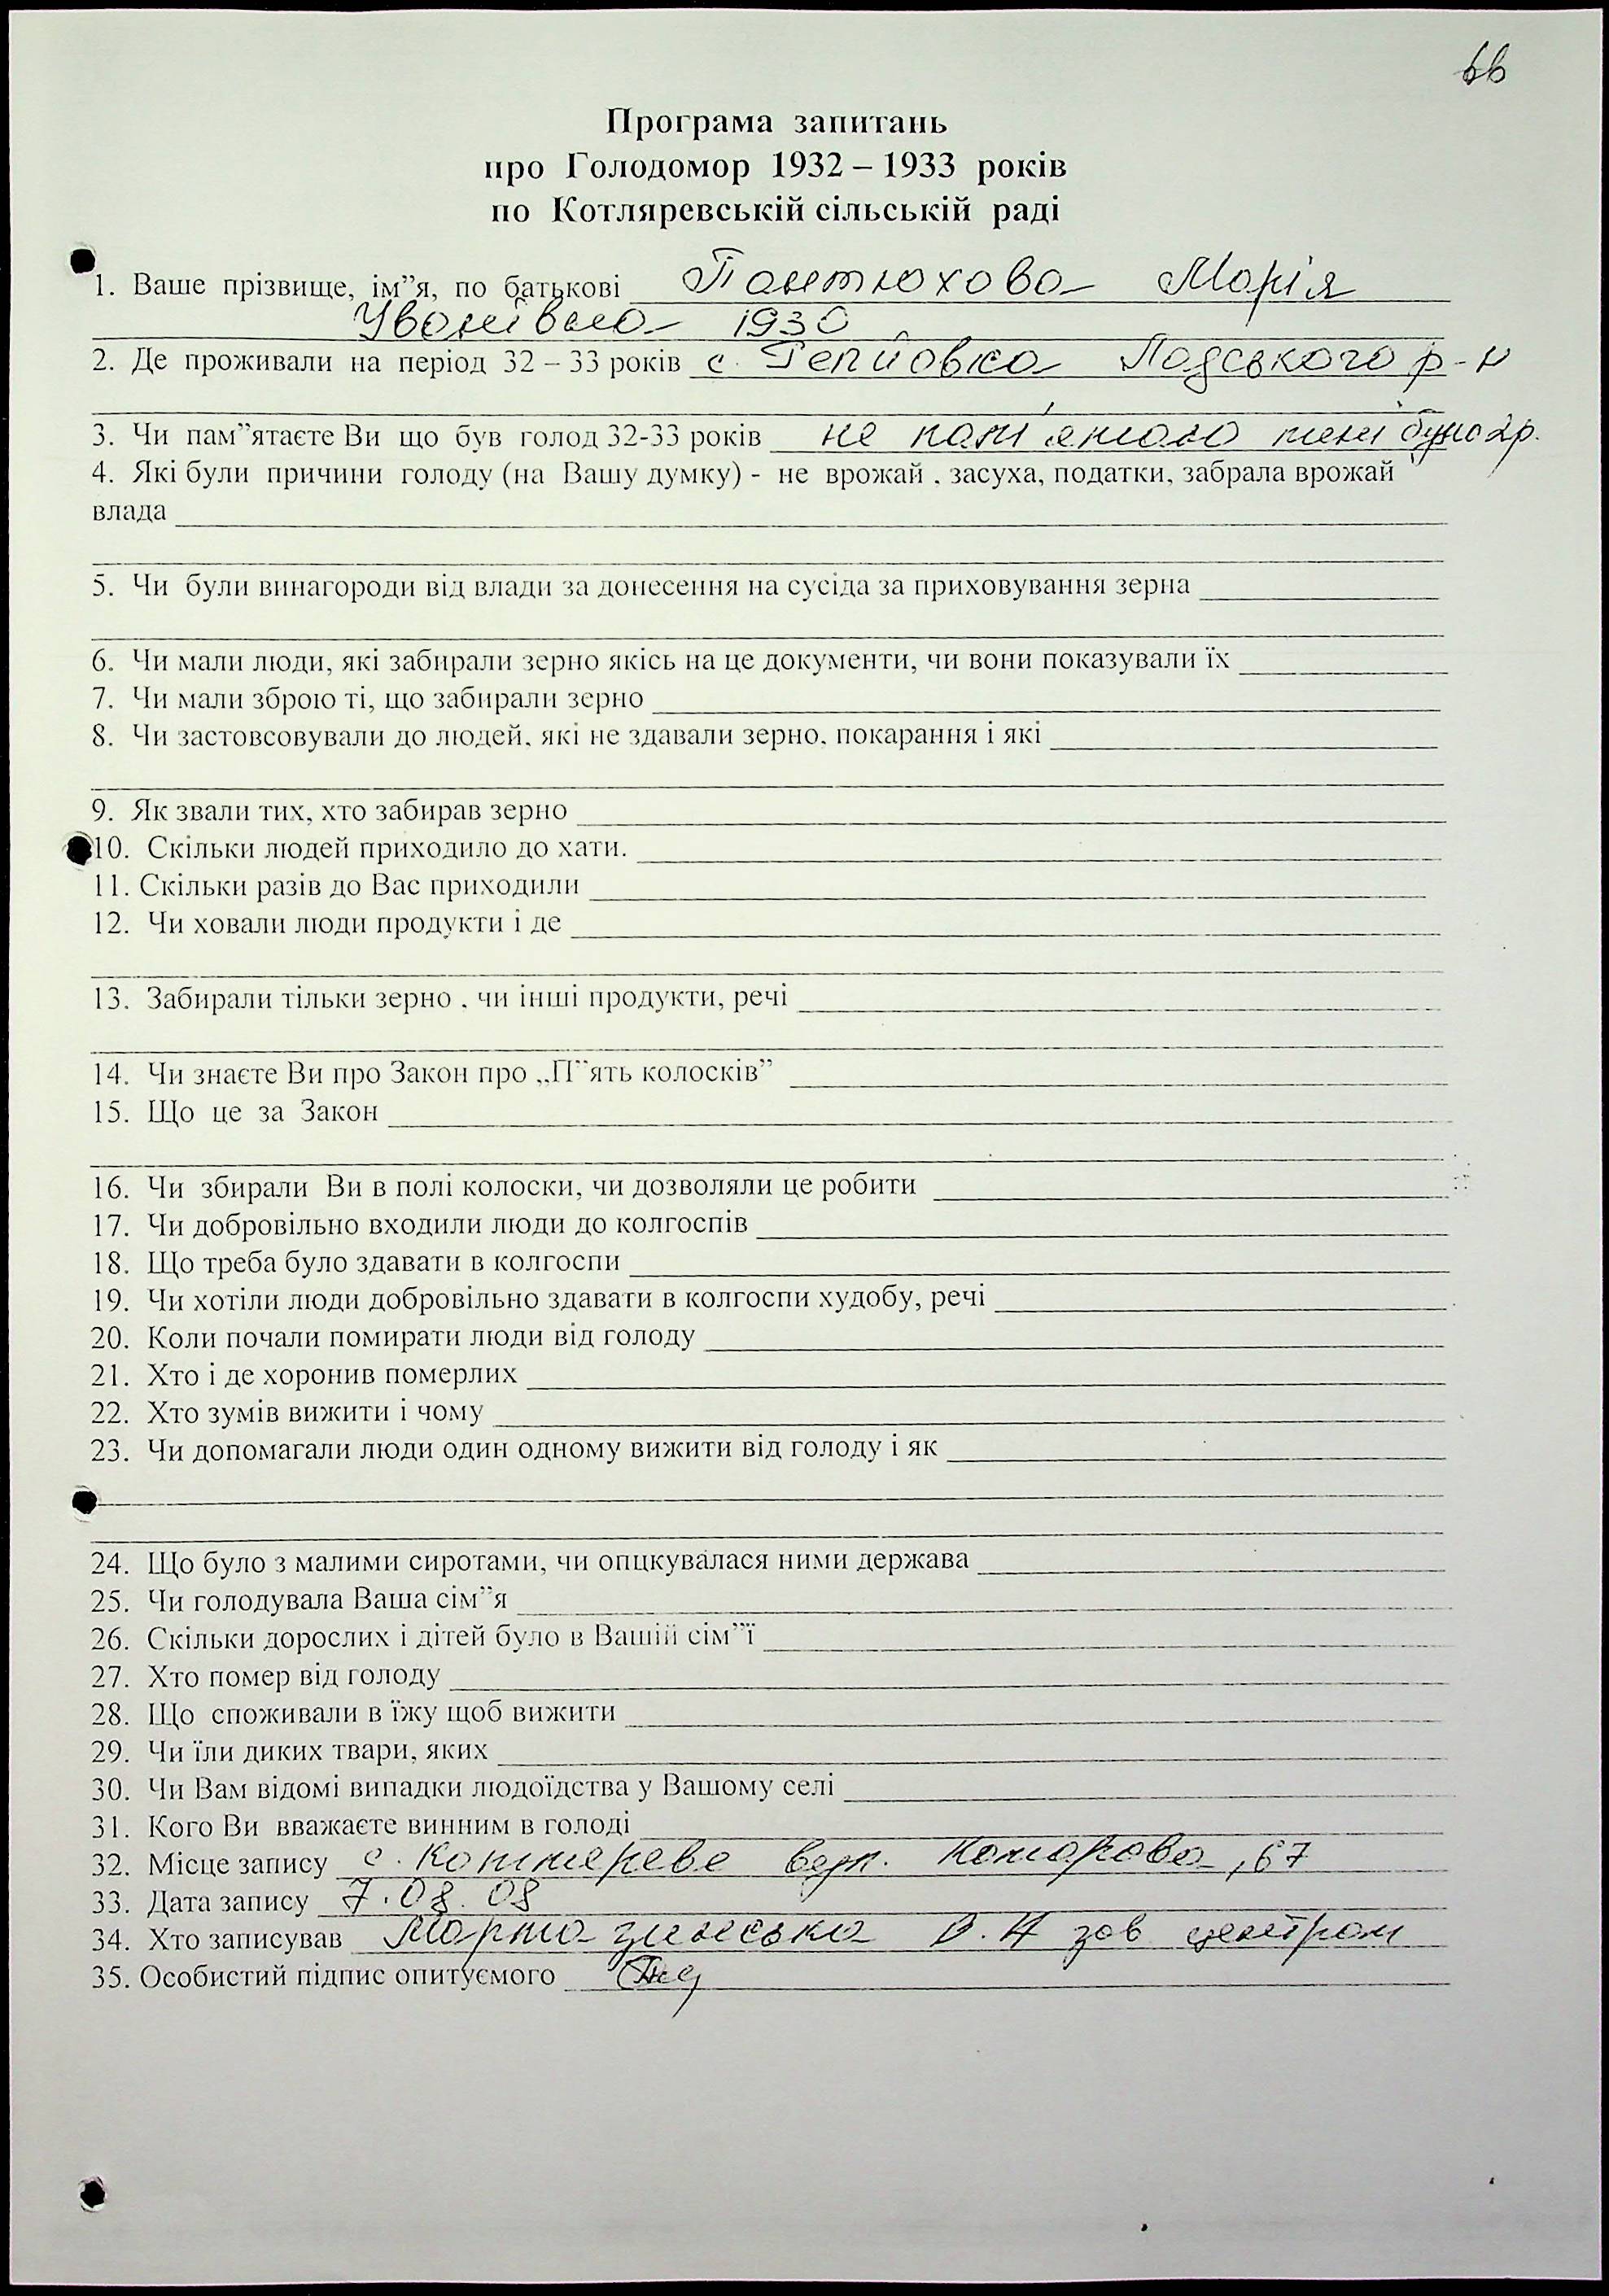 66
Програма запитань
про Голодомор 1932 – 1933 років
по Котляревській сільській раді
1. Ваше прізвище, ім”я, по батькові Пантюхова Марія
Іванівна 1930
2. Де проживали на період 32 – 33 років с. Репйовка р-н
3. Чи пам”ятаєте Ви що був голод 32-33 років не пам'ятаю мені було 2р.
4. Які були причини голоду (на Вашу думку) - не врожай , засуха, податки, забрала врожай
влада
5. Чи були винагороди від влади за донесення на сусіда за приховування зерна
6. Чи мали люди, які забирали зерно якісь на це документи, чи вони показували їх
7. Чи мали зброю ті, що забирали зерно
8. Чи застовсовували до людей, які не здавали зерно, покарання і які
9. Як звали тих, хто забирав зерно
10. Скільки людей приходило до хати.
11. Скільки разів до Вас приходили
12. Чи ховали люди продукти і де
13. Забирали тільки зерно , чи інші продукти, речі
14. Чи знаєте Ви про Закон про „П”ять колосків”
15. Що це за Закон
16. Чи збирали Ви в полі колоски, чи дозволяли це робити
17. Чи добровільно входили люди до колгоспів
18. Що треба було здавати в колгоспи
19. Чи хотіли люди добровільно здавати в колгоспи худобу, речі
20. Коли почали помирати люди від голоду
21. Хто і де хоронив померлих
22. Хто зумів вижити і чому
23. Чи допомагали люди один одному вижити від голоду і як
24. Що було з малими сиротами, чи опцкувалася ними держава
25. Чи голодувала Ваша сім”я
26. Скільки дорослих і дітей було в Вашій сім”ї
27. Хто помер від голоду
28. Що споживали в їжу щоб вижити
29. Чи їли диких твари, яких
30. Чи Вам відомі випадки людоїдства у Вашому селі
31. Кого Ви вважаєте винним в голоді
32. Місце запису с. Комарова, 67
33. Дата запису 7.08.08
34. Хто записував В.Н зав центром
35. Особистий підпис опитуємого